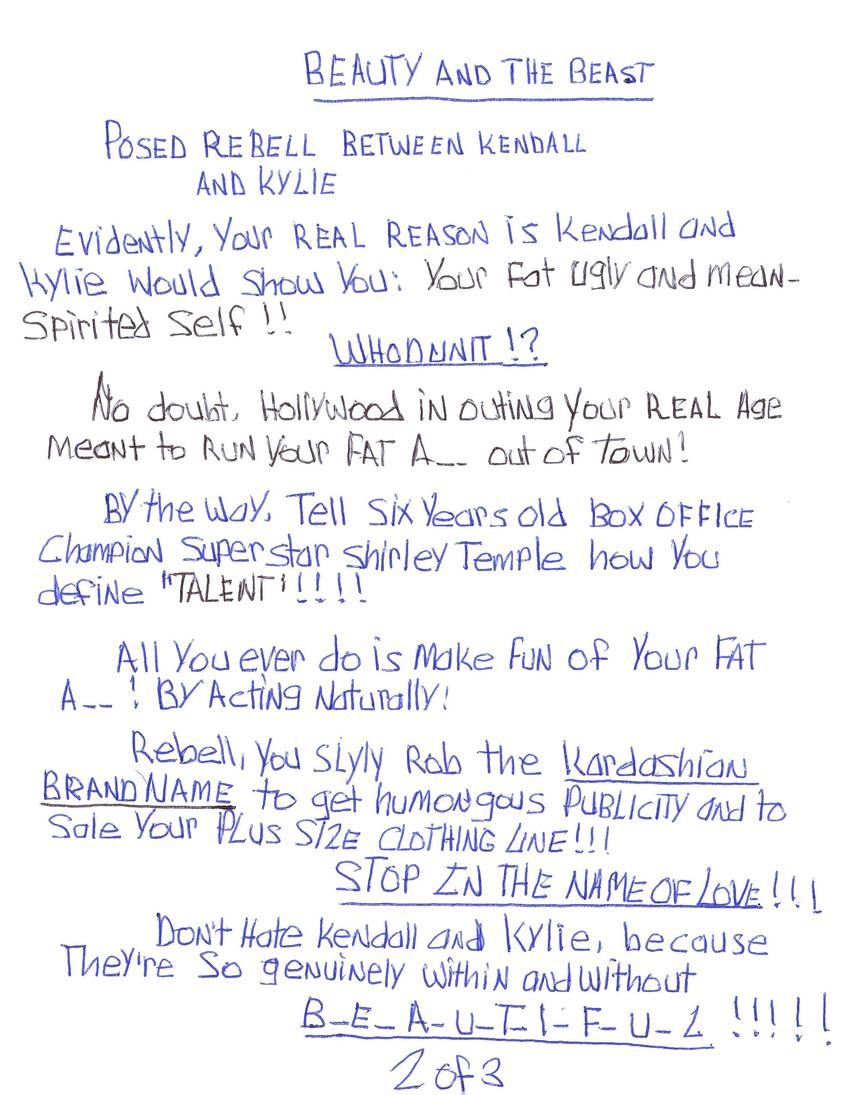 BEAUTY AND THE BEAST
POSED REBELL BETWEEN KENDALL
AND KYLIE
Evidently, Your REAL REASON is Kendall and
Kylie Would Show You: Your Fat Ugly and Mean-
Spirited Self !!
WHODUNIT !?
No doubt, Hollywood in outing Your REAL Age
Meant to RUN Your FAT A__ out of Town!
By the way, Tell Six Years old BOX OFFICE
Champion Superstar Shirley Temple how You
define "TALENT"!!!!!
All You ever do is Make FUN of Your FAT
A__ ! BY Acting Naturally!
Rebell, You Slyly Rob the Kardashian
BRAND NAME to get humongous PUBLICITY and to
Sale Your PLUS SIZE CLOTHING LINE!!!
STOP IN THE NAME OF LOVE!!!
Don't Hate Kendall and Kylie, because
They're So genuinely within and without
B-E-A-U-T-I-F-U-L !!!!!
2 of 3